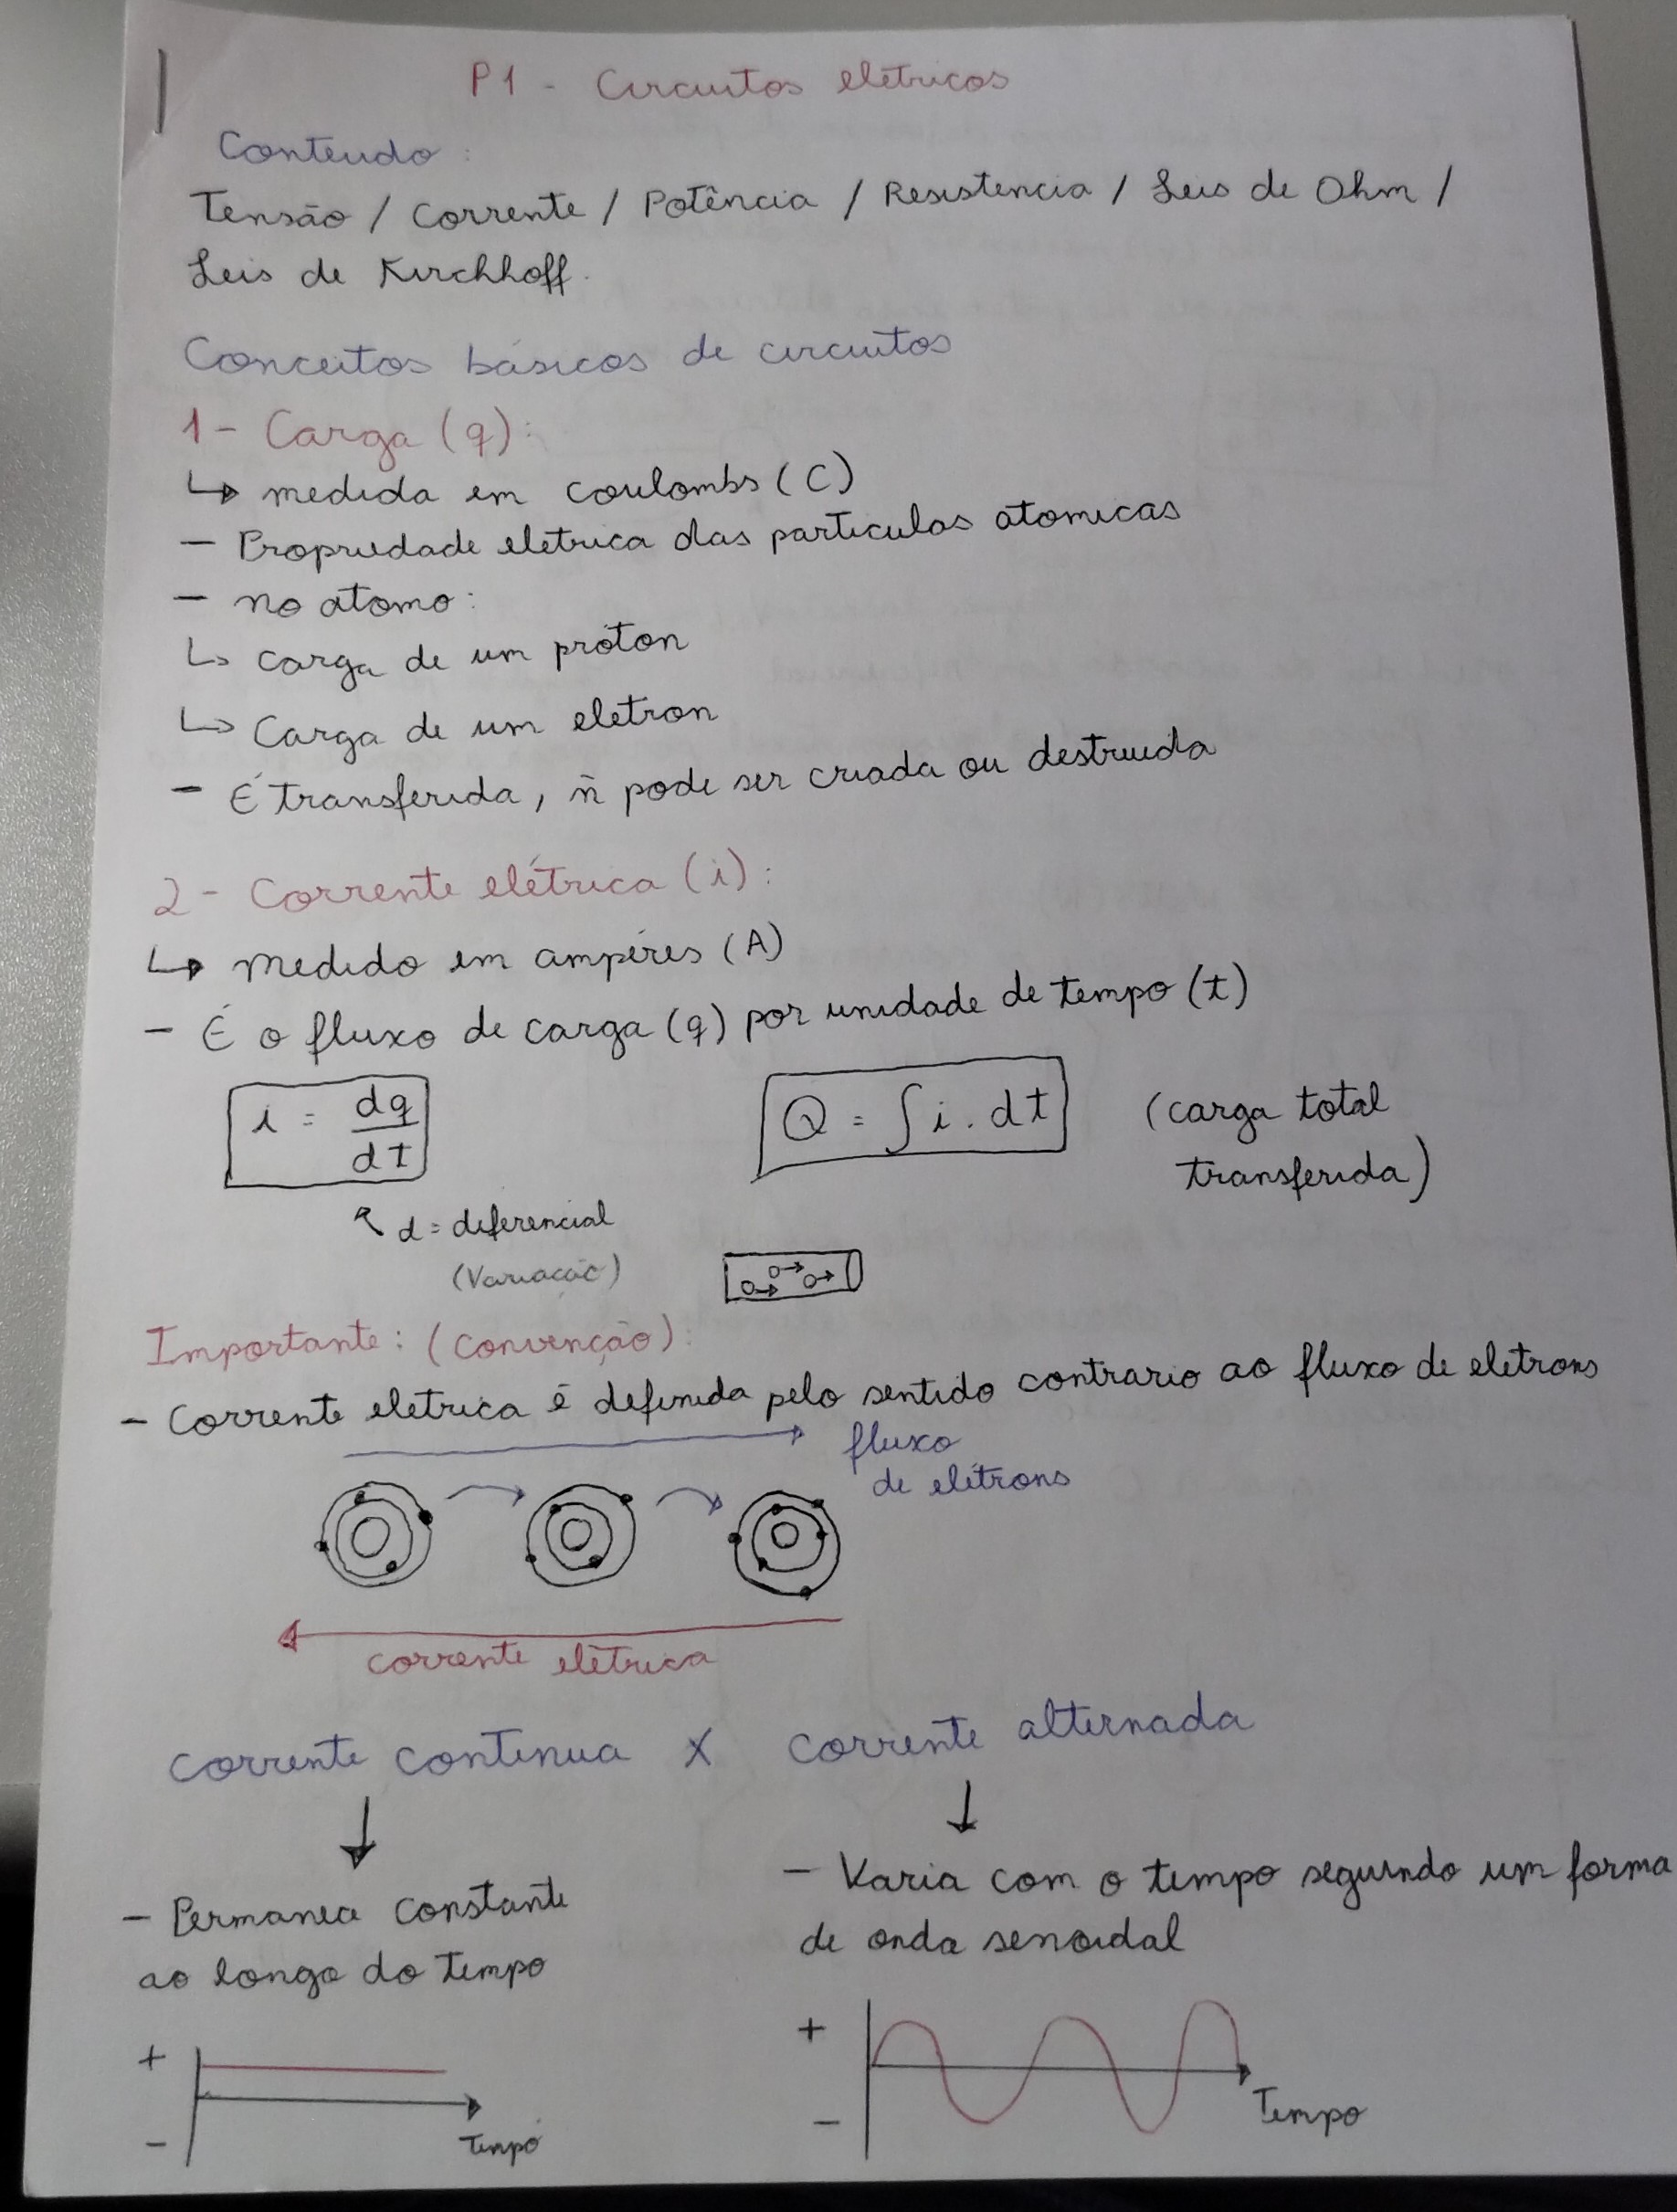 P1 - Circuitos elétricos
Conteudo:
Tensão / Corrente / Potência / Resistencia / Leis de Ohm /
Leis de Kirchhoff.
Conceitos básicos de circuitos
1 - Carga (q):
↳ medida em coulombs (C)
- Propriedade eletrica das particulas atomicas
- no atomo:
↳ carga de um próton
↳ Carga de um eletron
- É transferida, ñ pode ser criada ou destruida
2 - Corrente elétrica (i):
↳ medido em ampéres (A)
- É o fluxo de carga (q) por unidade de tempo (t)
i = dq/dt
Q = ∫ i . dt (carga total
transferida)
↖ d = diferencial
(Variação)
Importante: (convenção):
- Corrente eletrica é definida pelo sentido contrario ao fluxo de eletrons
fluxo
de elétrons
corrente elétrica
corrente continua X corrente alternada
↓ ↓
- Permanece constante
ao longo do tempo
- Varia com o tempo segundo um forma
de onda senoidal
+
-
Tempo
+
-
Tempo